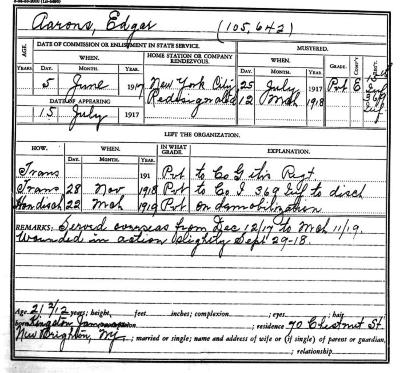 Aarons, Edgar (105,642)
AGE.
DATE OF COMMISSION OR ENLISTMENT IN STATE SERVICE.
HOME STATION OR COMPANY RENDEZVOUS.
MUSTERED.
GRADE.
COMP'Y
YEARS. DAY. MONTH. WHEN. DAY. MONTH. WHEN.
5 June 1917 New York City 25 July 1917 Pvt E
DATE OF APPEARING 12 Mch 1918
15 July 1917
LEFT THE ORGANIZATION.
HOW. WHEN. IN WHAT GRADE. EXPLANATION.
DAY. MONTH.
Trans 191 Pvt to Co G this Regt
Trans 28 Nov 1918 Pvt to Co I 369 Inf to disch
Hon disch 22 Mch 1919 Pvt on demobilization
REMARKS: Served overseas from Dec 12/17 to Mch 11/19.
Wounded in action slightly Sept 29-18.
Age, 21 2/12 years; height, feet inches; complexion, ; eyes, ; hair
born Kingston Jamaica ; residence 70 Chestnut St.
New Brighton, NY ; married or single; name and address of wife or (if single) of parent or guardian,
; relationship.